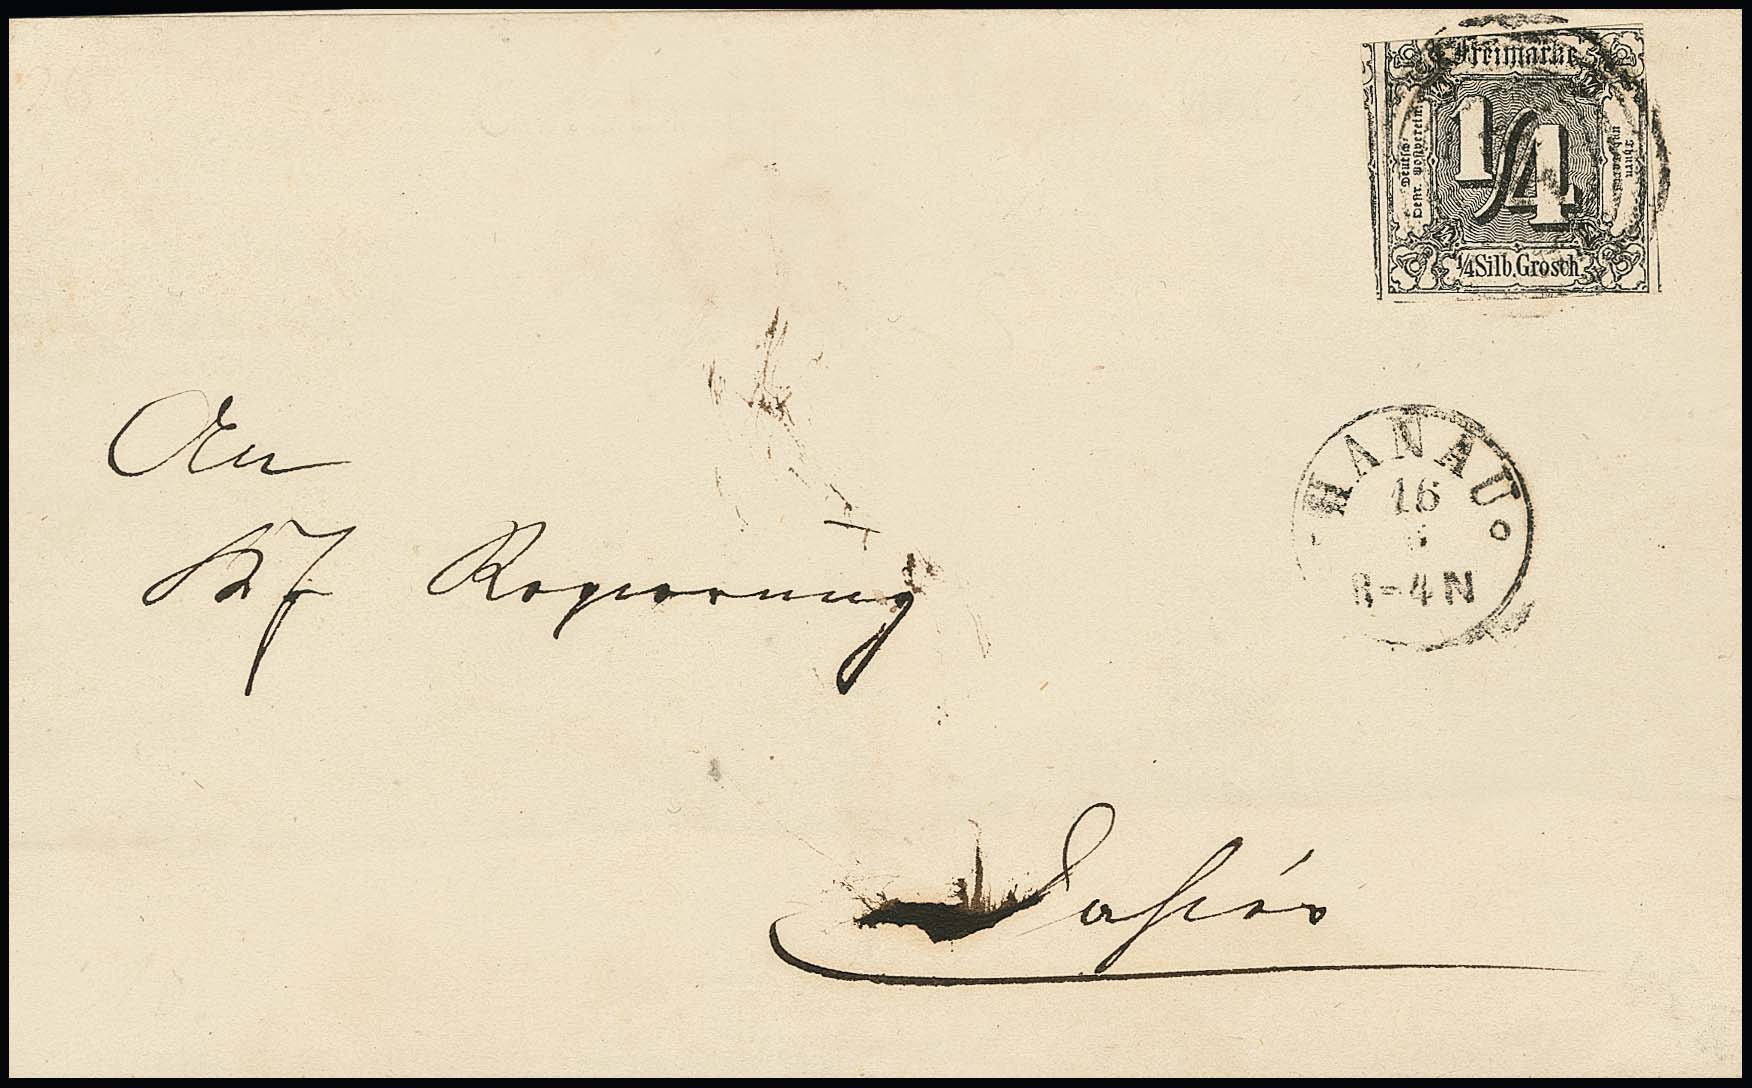 Freimarke
Deutsch-
Oestr. Postverein.
1/4
Thurn
und Taxis
1/4 Silb. Grosch.
HANAU
16
-4 N
An
Kf Regierung